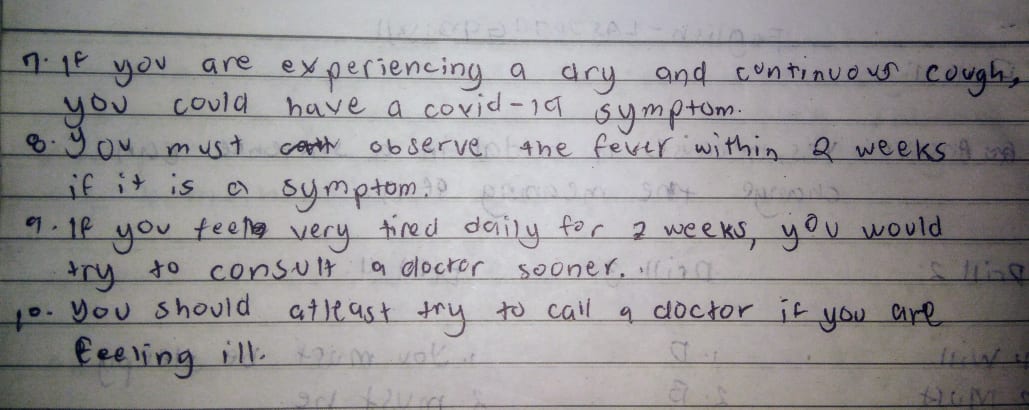 7. If you are experiencing a dry and continuous cough,
you could have a covid-19 symptom.
8. You must observe the fever within 2 weeks
if it is a symptom.
9. If you feel very tired daily for 2 weeks, you would
try to consult a doctor sooner.
10. You should atleast try to call a doctor if you are
feeling ill.